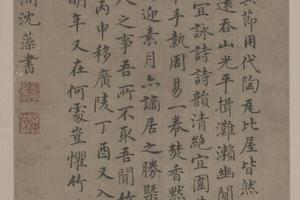 其節用代陶瓦比屋皆然
遠吞山光平挹灘瀨幽闃
宜詠詩詩韻清絕宜圍
手執周易一卷焚香默
迎素月亦謫居之勝槩
人之事吾所不取吾聞竹
丙申移廣陵丁酉又入
明年又在何處豈懼竹
沈藻書